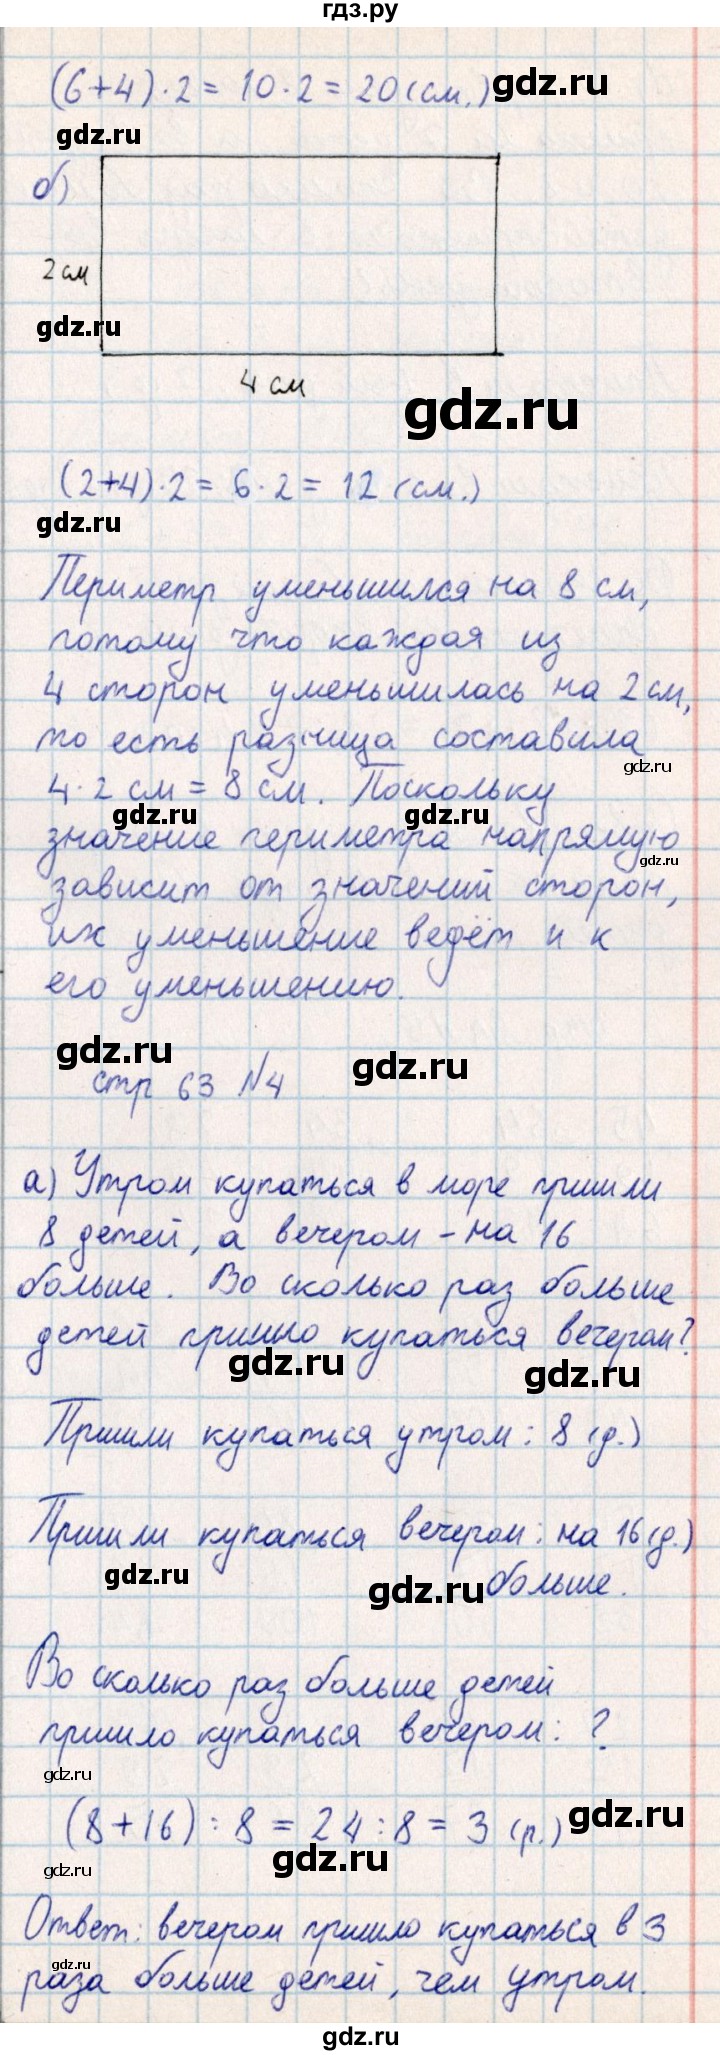 гдз.ру
(6+4)·2=10·2=20(см.)
gdz.ru
gdz.ru
б)
2 см
gdz.ru
4 см
gdz.ru
(2+4)·2=6·2=12(см.)
gdz.ru
Периметр уменьшился на 8 см,
потому что каждая из
4 сторон уменьшилась на 2 см,
то есть разница составила
gdz.ru
4·2 см = 8 см. Поскольку
gdz.ru
gdz.ru
значение периметра напрямую
gdz.ru
зависит от значений сторон,
их уменьшение ведёт и к
его уменьшению.
gdz.ru
gdz.ru
стр 63 №4
а) Утром купаться в море пришли
8 детей, а вечером – на 16
больше. Во сколько раз больше
детей пришло купаться вечером?
gdz.ru
gdz.ru
Пришли купаться утром: 8 (д.)
Пришли купаться вечером: на 16(д.)
gdz.ru
gdz.ru
больше.
Во сколько раз больше детей
пришло купаться вечером: ?
gdz.ru
(8+16):8=24:8=3(р.)
gdz.ru
gdz.ru
gdz.ru
Ответ: вечером пришло купаться в 3
gdz.ru
раза больше детей, чем утром.
gdz.ru